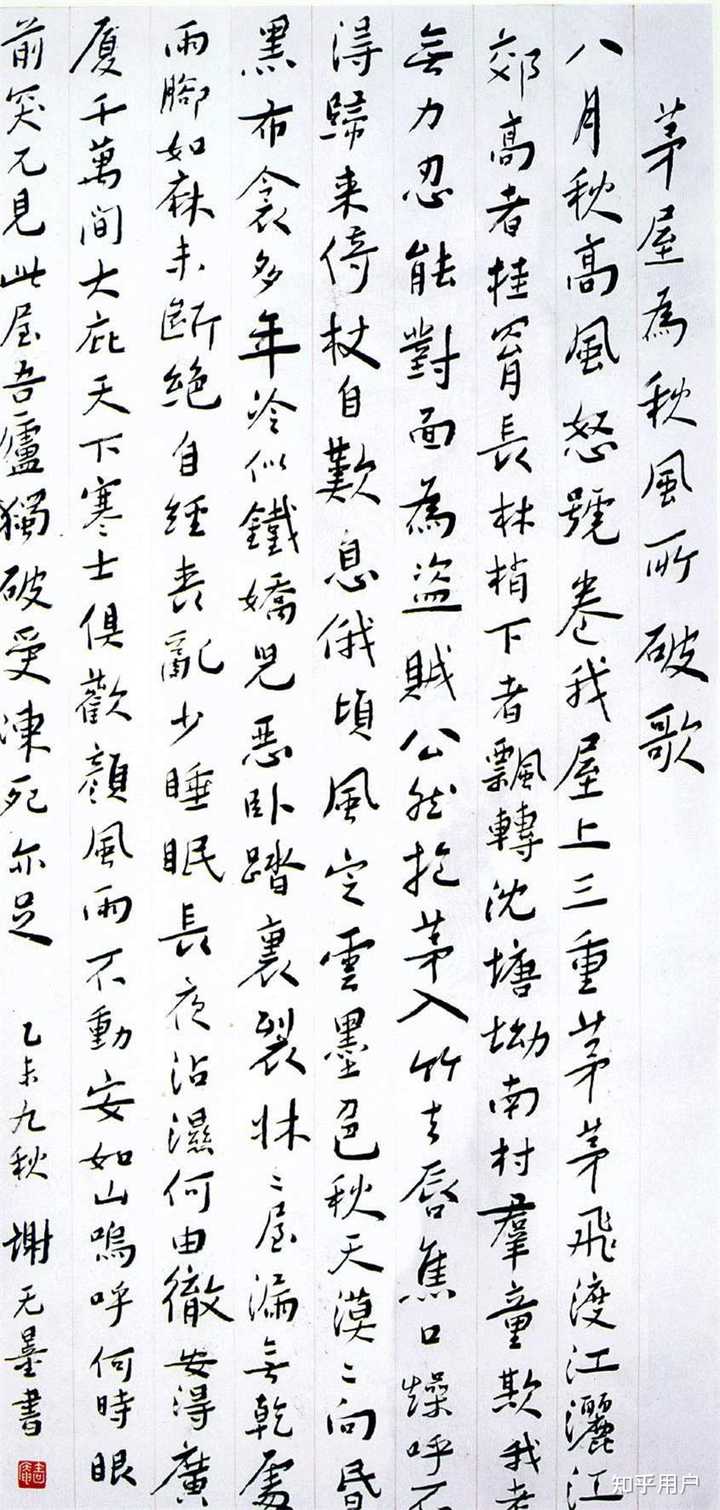 茅屋為秋風所破歌
八月秋高風怒號卷我屋上三重茅茅飛渡江灑江
郊高者挂罥長林梢下者飄轉沈塘坳南村羣童欺我老
無力忍能對面為盜賊公然抱茅入竹去唇焦口燥呼不
得歸来倚杖自歎息俄頃風定雲墨色秋天漠〻向昏
黑布衾多年冷似鐵嬌兒惡卧踏裏裂牀〻屋漏無乾處
雨腳如麻未斷絕自經喪亂少睡眠長夜沾濕何由徹安得廣
廈千萬間大庇天下寒士俱歡顏風雨不動安如山嗚呼何時眼
前突兀見此屋吾廬獨破受凍死亦足 乙未九秋 謝无量書
知乎用户